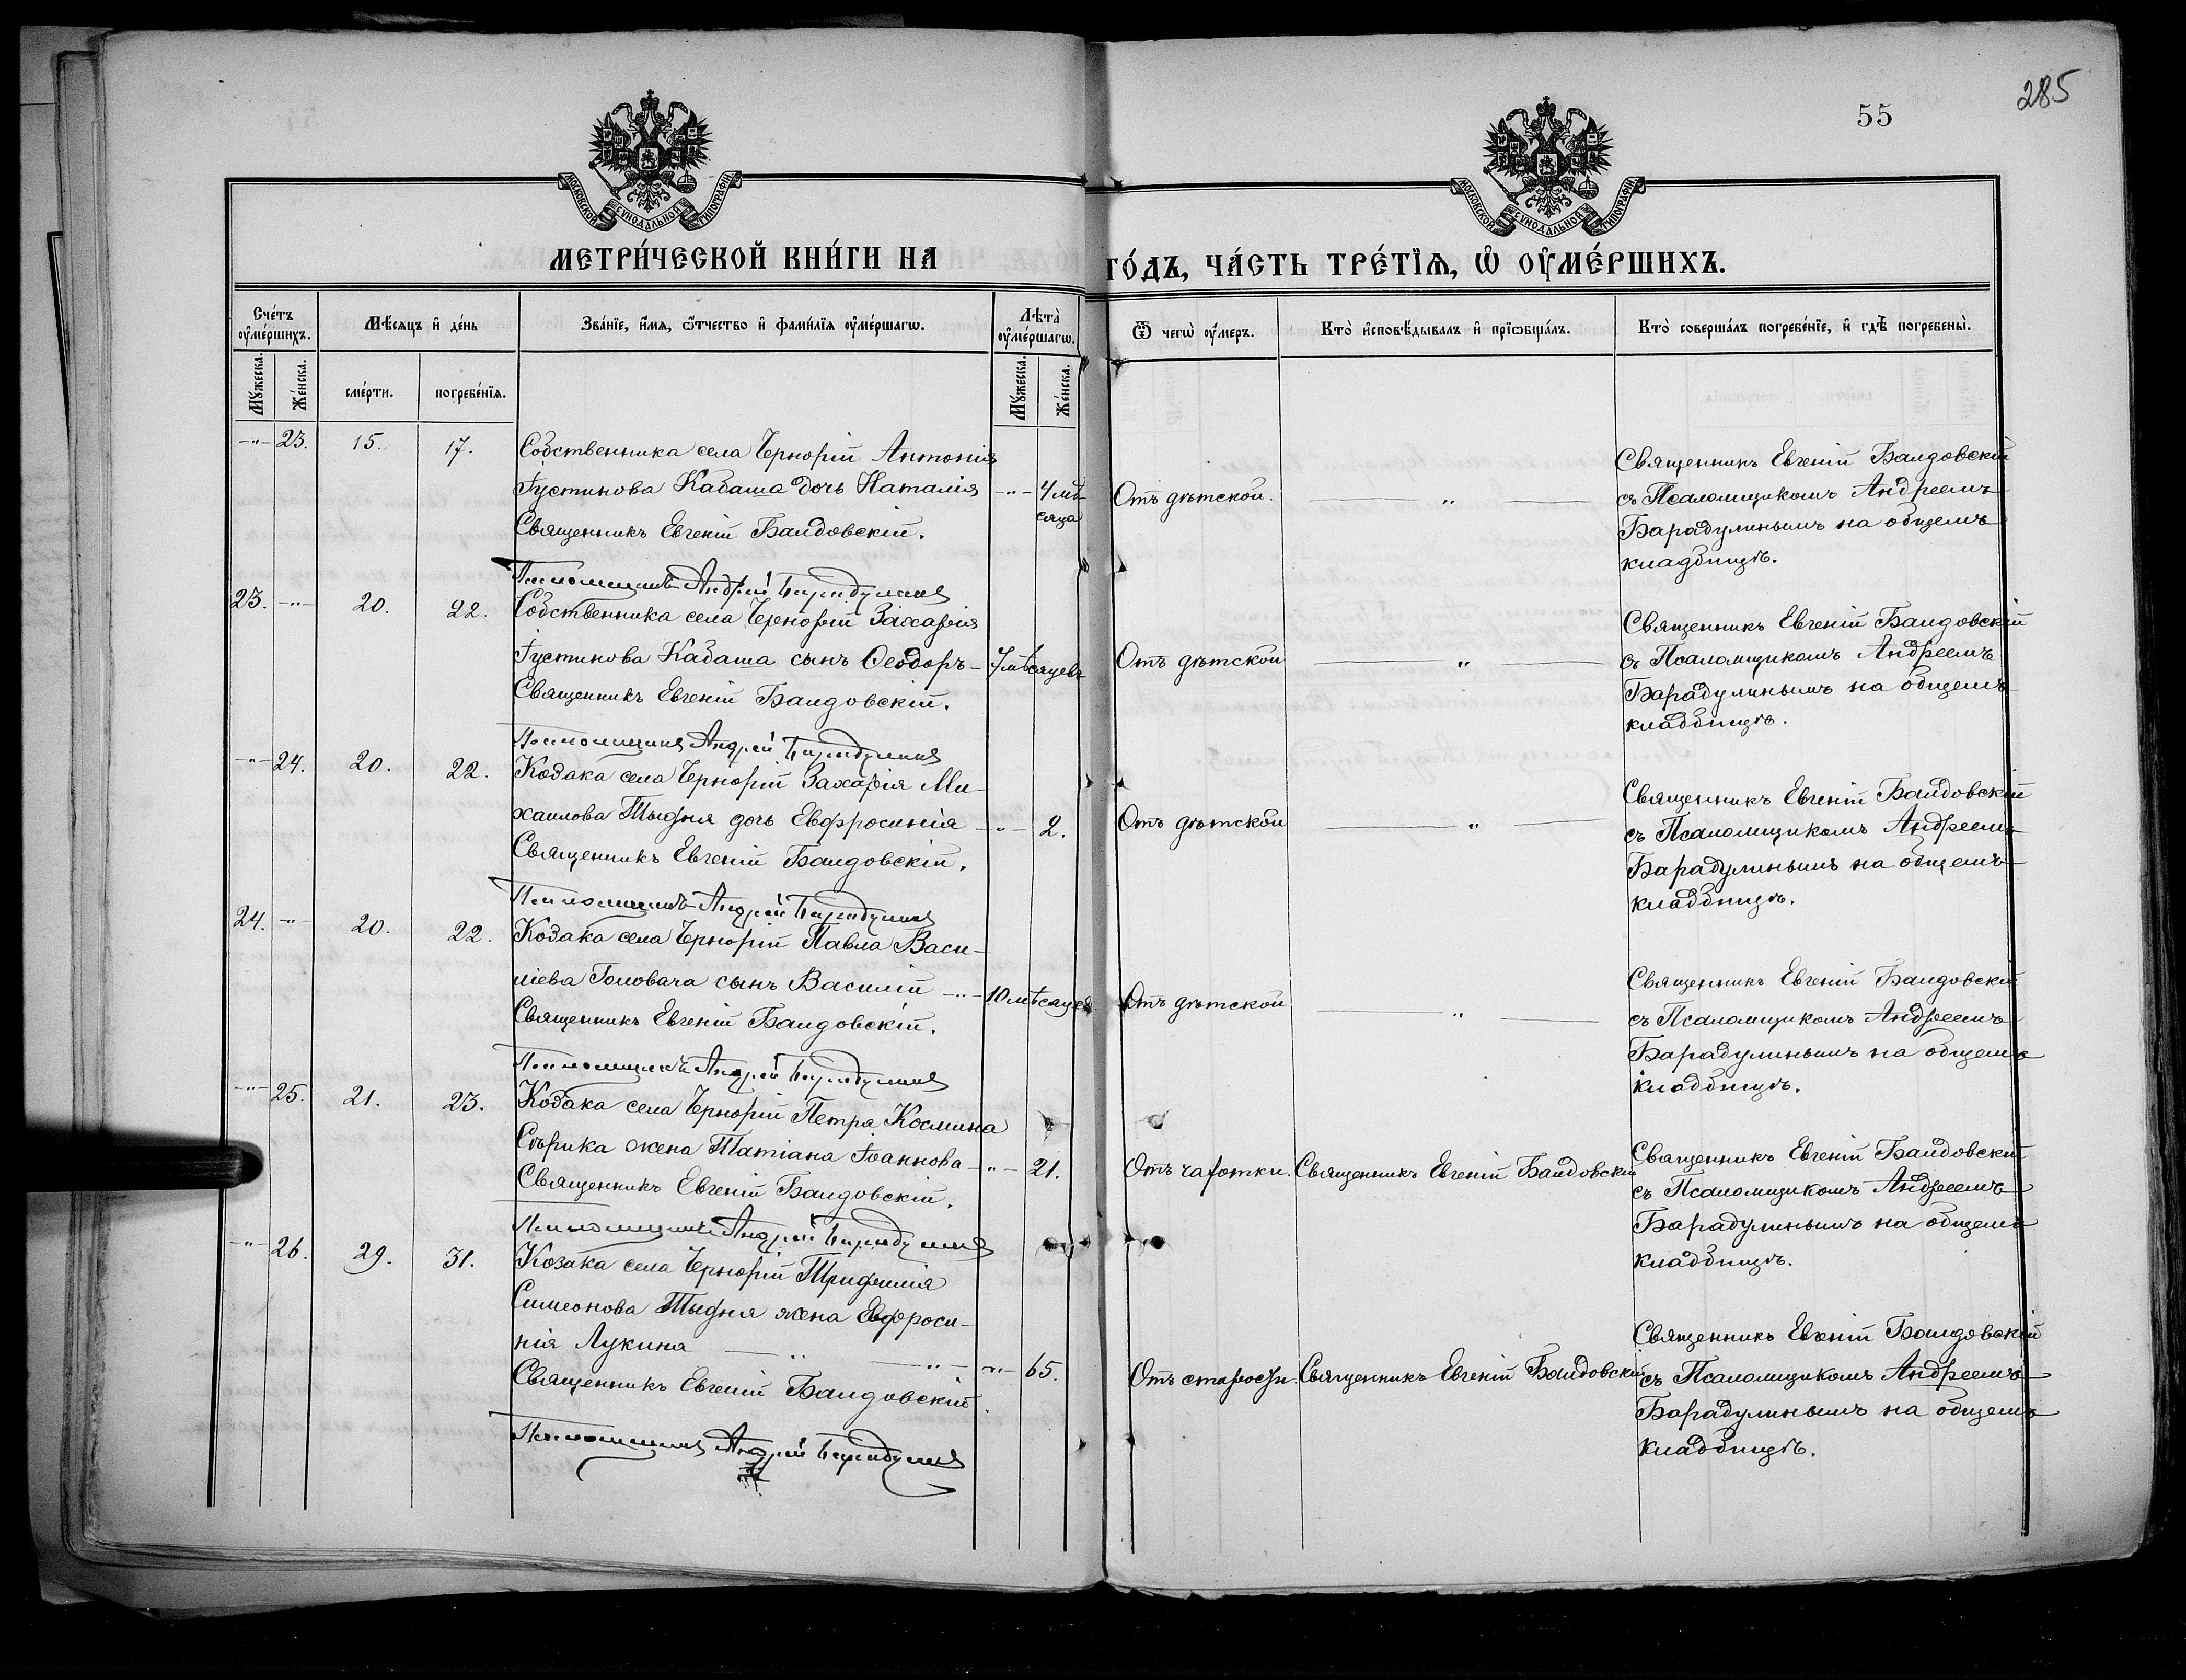 285
55
МОСКОВСКОЙ СУНОДАЛЬНОЙ ТИПОГРАФІИ
МОСКОВСКОЙ СУНОДАЛЬНОЙ ТИПОГРАФІИ
МЕТРИ́ЧЕСКОЙ КНИ́ГИ НА
ГО́ДЪ, ЧА́СТЬ ТРЕ́ТІѦ, Ѡ҆ ОУ҆МЕ́РШИХЪ.
Сче́тъ оу҆ме́ршихъ.
Мѣ́сяцъ и҆ де́нь
Зва́нїе, и҆́мѧ, ѻ҆́тчество и҆ фами́лїѧ оу҆ме́ршагѡ.
Лѣ̑та̀ оу҆ме́ршагѡ.
Ѿ чегѡ̀ оу҆́меръ.
Кто̀ и҆сповѣ́дывалъ и҆ прїѡбща́лъ.
Кто̀ соверша́лъ погребе́нїе, и҆ гдѣ̀ погребены̀.
Мꙋ́жеска.
Же́нска.
сме́рти.
погребе́нїѧ.
Мꙋ́жеска.
Же́нска.
-"- 23. 15. 17. Собственника села Чернорій Антонія
Іустинова Кабаша дочь Наталія -"- 4 мѣ-
сяца
Священникъ Евгеній Баидовскій.
Псаломщикъ Андрей Барадулинъ
Отъ дѣтской. — " —
Священникъ Евгеній Баидовскій
съ Псаломщикомъ Андреемъ
Барадулинымъ на общемъ
кладбищѣ.
23. -"- 20. 22. Собственника села Чернорій Захарія
Іустинова Кабаша сынъ Ѳеодоръ - 7 мѣсяцевъ
Священникъ Евгеній Баидовскій.
Псаломщикъ Андрей Барадулинъ
Отъ дѣтской — " —
Священникъ Евгеній Баидовскій
съ Псаломщикомъ Андреемъ
Барадулинымъ на общемъ
кладбищѣ.
-"- 24. 20. 22. Козака села Чернорій Захарія Ми-
хаилова Тыдня дочь Евфросинія -"- 2.
Священникъ Евгеній Баидовскій.
Псаломщикъ Андрей Барадулинъ
Отъ дѣтской — " —
Священникъ Евгеній Баидовскій
съ Псаломщикомъ Андреемъ
Барадулинымъ на общемъ
кладбищѣ.
24. -"- 20. 22. Козака села Чернорій Павла Васи-
ліева Головача сынъ Василій -"- 10 мѣсяцев
Священникъ Евгеній Баидовскій.
Псаломщикъ Андрей Барадулинъ
Отъ дѣтской — " —
Священникъ Евгеній Баидовскій
съ Псаломщикомъ Андреемъ
Барадулинымъ на общемъ
кладбищѣ.
-"- 25. 21. 23. Козака села Чернорій Петра Космина
Сѣрика жена Татіана Іоаннова -"- 21.
Священникъ Евгеній Баидовскій.
Псаломщикъ Андрей Барадулинъ
Отъ чахотки. Священникъ Евгеній Баидовскій
Священникъ Евгеній Баидовскій
съ Псаломщикомъ Андреемъ
Барадулинымъ на общемъ
кладбищѣ.
-"- 26. 29. 31. Козака села Чернорій
Симеонова Тыдня жена Евфроси-
нія Лукина — " — " — -"- 65.
Священникъ Евгеній Баидовскій.
Псаломщикъ Андрей Барадулинъ
Отъ старости. Священникъ Евгеній Баидовскій
Священникъ Евгеній Баидовскій
съ Псаломщикомъ Андреемъ
Барадулинымъ на общемъ
кладбищѣ.